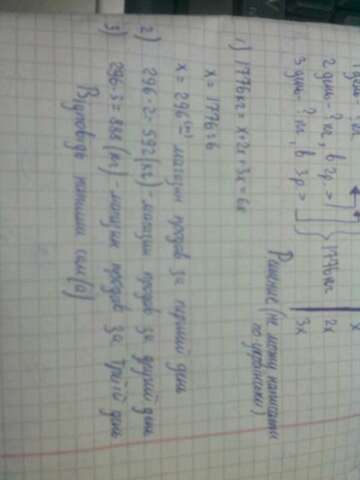 2 день - ? кг, в 2р. >
3 день - ? кг, в 3р. >
1776 кг
x
2x
3x
Рішення (не можу написати
по-українськи)
1) 1776 кг = x+2x+3x=6x
x = 1776:6
x = 296 (кг) - магазин продав за перший день
2) 296·2=592 (кг) - магазин продав за другий день
3) 296·3=888 (кг) - магазин продав за третій день
Відповідь напиши сам(а)